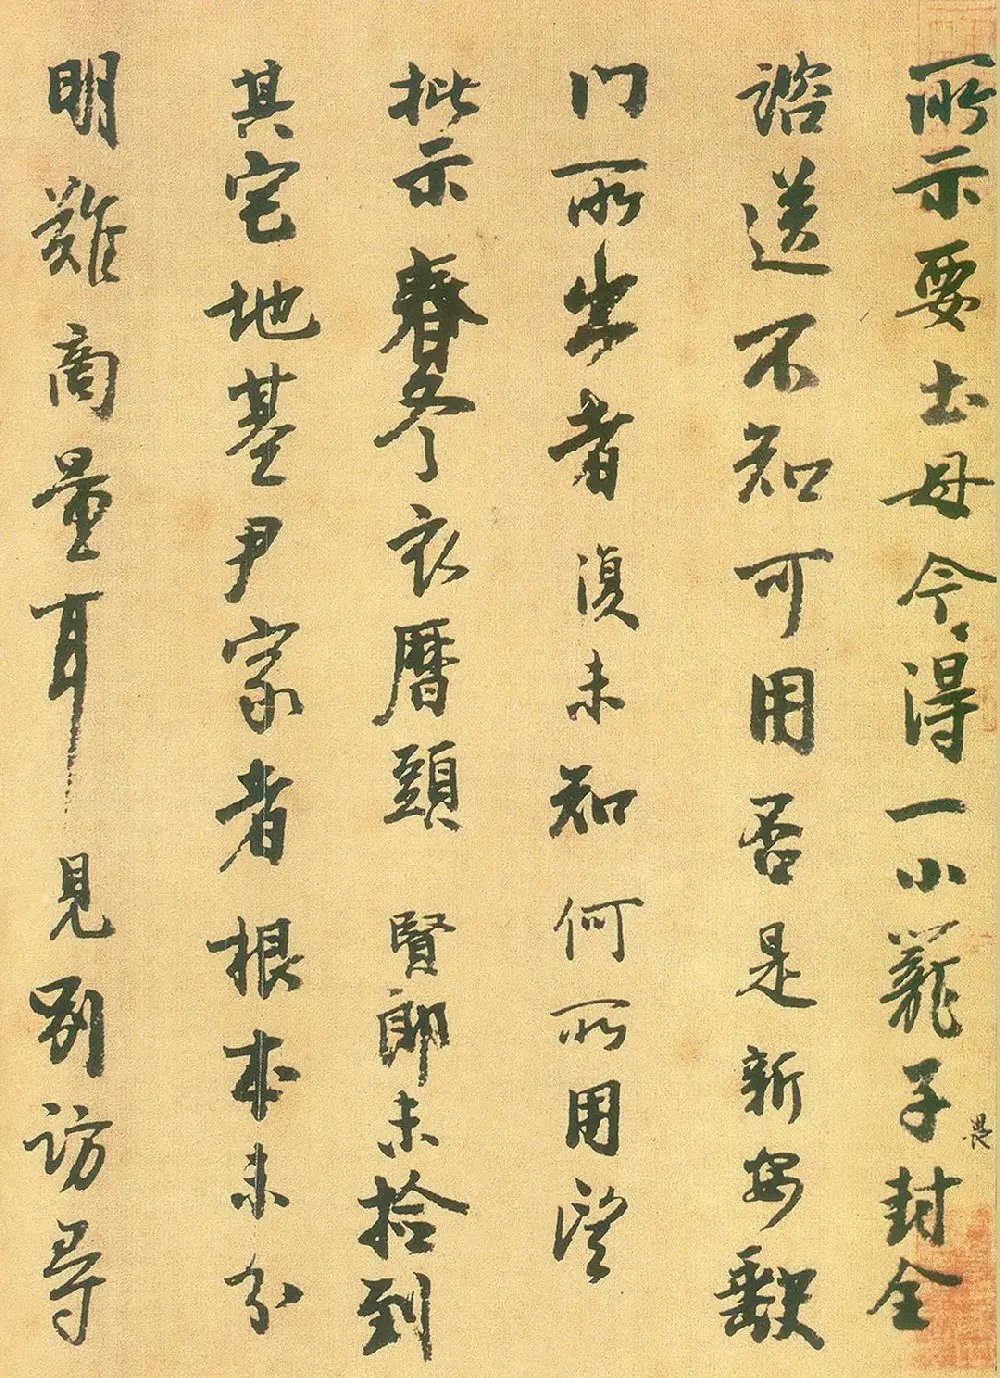 所示要土母今得一小籠子封全
諮送不知可用否是新安缺
门所出者復未知何所用望
批示春冬衣曆頭 賢郎未拾到
其宅地基尹家者根本未分
明難商量耳見別訪尋